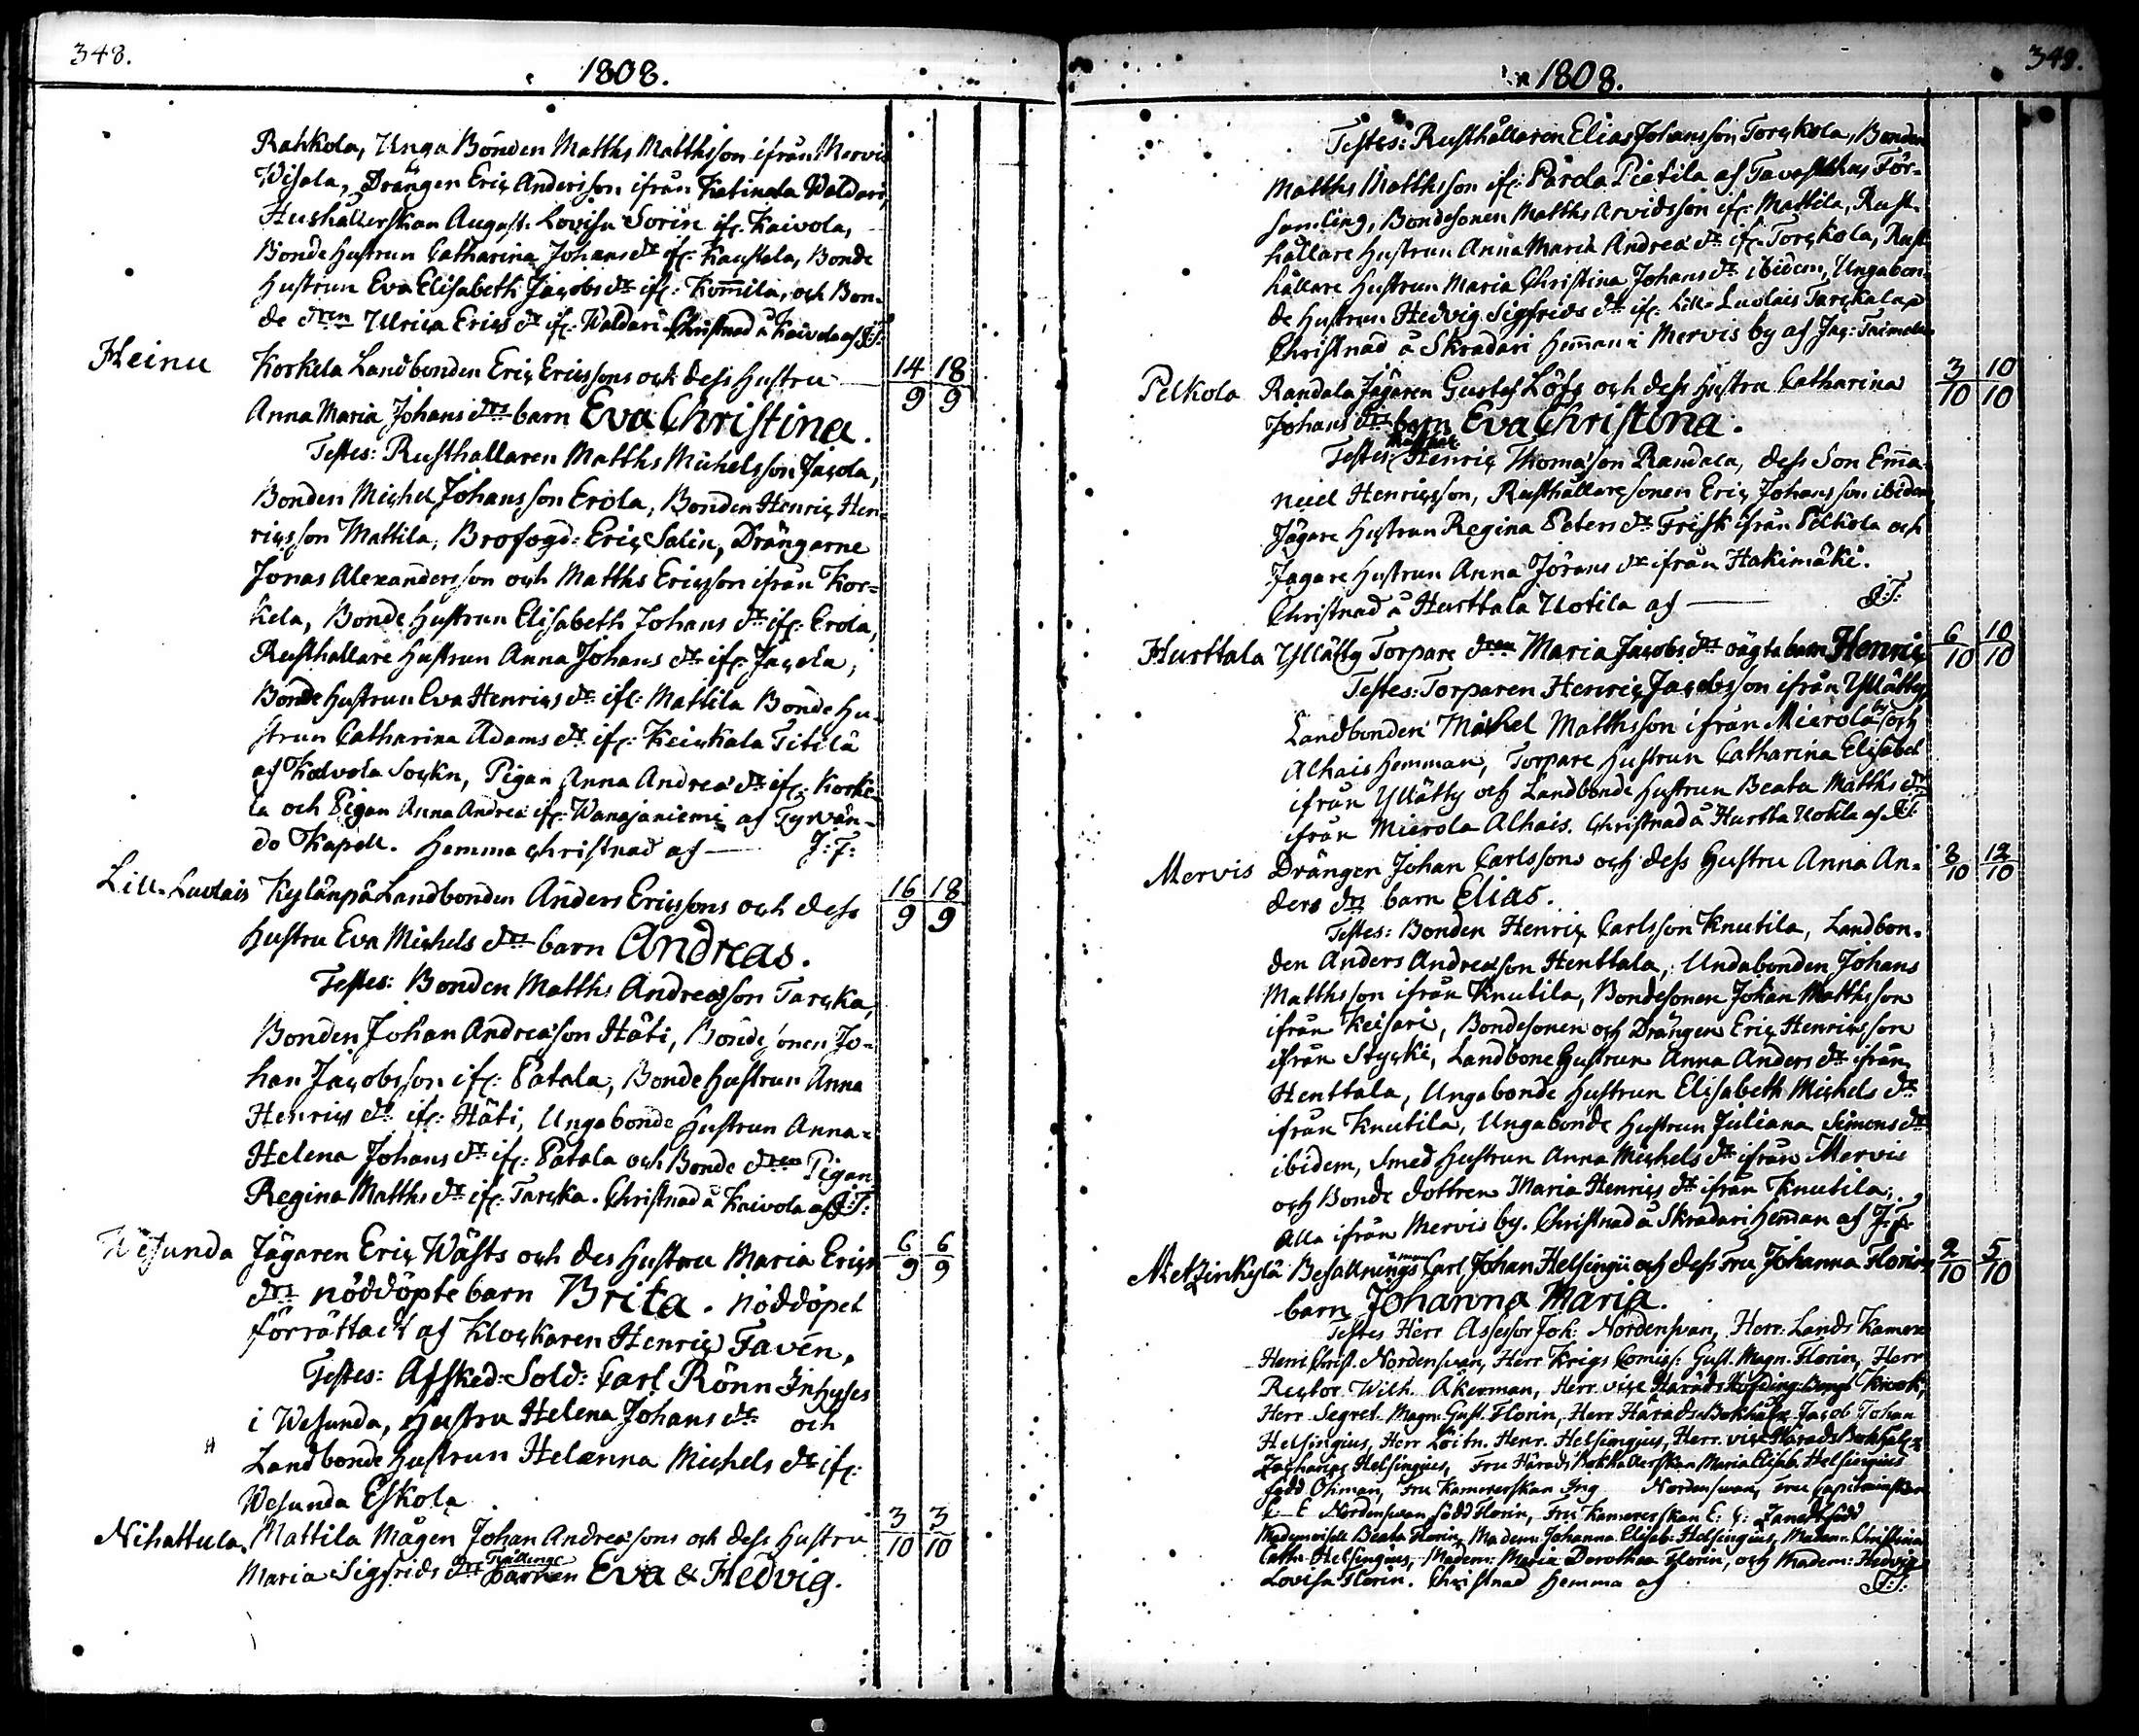 348.
1808.
Rahkola, Unga Bonden Matths Matthsson ifrån Mervis
Wisala, Drängen Eric Andersson ifrån Katinala Waldari,
Hushållerskan August. Lovisa Sorin ifr: Kaivola,
Bonde hustrun Catharina Johans dr ifr: Kaustala, Bonde
hustrun Eva Elisabeth Jacobs dr ifr: Kom̄ila, och Bon-
de dren Ulrica Erics dr ifr: Waldari. Christnad å Kaivola af J:T:
Heinu Korkela Landbonden Eric Ericssons och dess hustru 14 18
Anna Maria Johans drs barn Eva Christina. 9 9
Testes: Rusthallaren Matths Michelsson Jacola,
Bonden Michel Johansson Erola, Bonden Henric Hen-
ricsson Mattila, Brofogd: Eric Salin, Drängarne
Jonas Alexandersson och Matths Ericsson ifrån Kor=
kela, Bonde hustrun Elisabeth Johans dr ifr: Erola,
Rusthallare hustrun Anna Johans dr ifr: Jacola,
Bonde hustrun Eva Henrics dr ifr: Mattila Bonde hu-
strun Catharina Adams dr ifr: Keickala Titilä
af Kalvola Sockn, Pigan Anna Andreæ dr ifr: Korke-
la och Pigan Anna Andreæ ifr: Wanajaniemi af Tyrvän-
dö Kapell. Hemma christnad af — J:T:
Lill-Luolais Kylänpä Landbonden Anders Ericssons och dess 16 18
hustru Eva Michels drs barn Andreas. 9 9
Testes: Bonden Matths Andreæson Tarcka,
Bonden Johan Andreæson Häti, Bondesonen Jo-
han Jacobsson ifr: Patala, Bonde hustrun Anna
Henrics dr ifr: Häti, Ungabonde hustrun Anna-
Helena Johans dr ifr: Patala och Bonde dren Pigan
Regina Matths dr ifr: Tarcka. Christnad å Kaivola af J:T:
Wesunda Jägaren Eric Wäfts och des hustru Maria Erics 6 6
drs nöddöpte barn Brita. Nöddöpet 9 9
förrättadt af Klockaren Henric Favén.
Testes: Afsked: Sold: Carl Rönn Inhyses
i Wesunda, hustru Helena Johans dr och
Landbonde hustrun Helænna Michels dr ifr:
Wesunda Eskola
Nihattula. Mattila Mågen Johan Andreæsons och dess hustru 3 3
Maria Sigfrids drs Tvillinge barnen Eva & Hedvig. 10 10
349.
1808.
Testes: Rusthållaren Elias Johansson Torckola, Bonden
Matths Matthsson ifr: Parola Pietila af Tavasthus För-
samling, Bondesonen Matths Arvidsson ifr: Mattila, Rust-
hållare hustrun Anna Maria Andreæ dr ifr: Torckola, Rust-
hållare hustrun Maria Christina Johans dr ibidem, Ungabon-
de hustrun Hedvig Sigfrids dr ifr: Lill-Luolais
Christnad å Skradari hem̄an i Mervis by af
Pelkola Randala Jägaren Gustaf Löfs och dess hustru Catharina 3 10
Johans drs barn Eva Christina. 10 10
Testes: Henric Thomæson Randala, dess Son Em̄a-
nuel Henricsson, Rusthållaresonen Eric Johansson ibidem
Jägare hustrun Regina Peters dr Frisk ifrån Pelkola och
Jagare hustrun Anna Jörans dr ifrån Hakimäki.
Christnad å Hurttala Uotila af — J:T:
Hurttala Yllätty Torpare dren Maria Jacobs drs oägta barn Henric 6 10
Testes: Torparen Henric Jacobsson ifrån Yllätty 10 10
Landbonden Michel Matthsson ifrån Mierola by och
Alhais hemman, Torpare hustrun Catharina Elisabet
ifrån Yllätty och Landbonde hustrun Beata Matths dr
ifrån Mierola Alhais. Christnad å Hurtta Uotila af J:T:
Mervis Drängen Johan Carlssons och dess hustru Anna An- 8 12
ders drs barn Elias. 10 10
Testes: Bonden Henric Carlsson Knutila, Landbon-
den Anders Andreæson Henttala, Undabonden Johans
Matthsson ifrån Knutila, Bondesonen Johan Matthsson
ifrån Keisari, Bondesonen och Drängen Eric Henricsson
ifrån Stycki, Landbone hustrun Anna Anders dr ifrån
Henttala, Ungabonde hustrun Elisabeth Michels dr
ifrån Knutila, Ungabonde hustrun Juliana Simons dr
ibidem, Smed hustrun Anna Michels dr ifrån Mervis
och Bonde dottren Maria Henrics dr ifrån Knutila,
Alla ifrån Mervis by. Christnad å Skradari hem̄an af J:T:
Metzinkylä Befallnings man Carl Johan Helsingii och dess Fru Johanna Florin 2 5
barn Johanna Maria. 10 10
Testes Herr Assessor Joh: Nordensvan, Herr Lands Kamerer
Henr. Christ. Nordensvan, Herr Krigs Com̄iss: Gust. Magn. Florin, Herr
Rector Wilh. Åkerman, Herr vice Härads Höfding Bengt Krook,
Herr Segret. Magn. Gust. Florin, Herr Härads Bokhålln Jacob Johan
Helsingius, Herr Löitn. Henr. Helsingius, Herr vice Härads Bokhållen
Zacharias Helsingius, Fru Härads Bokhållerskan Maria Elisab. Helsingius
född Ohman, Fru Kamrerskan Ing Nordensvan, Fru Capitainskan
E— E Nordensvan född Florin, Fru Kamererskan E: C: född
Mademoiselle Beata Florin, Madem: Johanna Elisab: Helsingius, Madem: Christina
Cath: Helsingius, Madem: Maria Dorothea Florin, och Madem: Hedvig
Lovisa Florin. Christnad hemma af J:T: